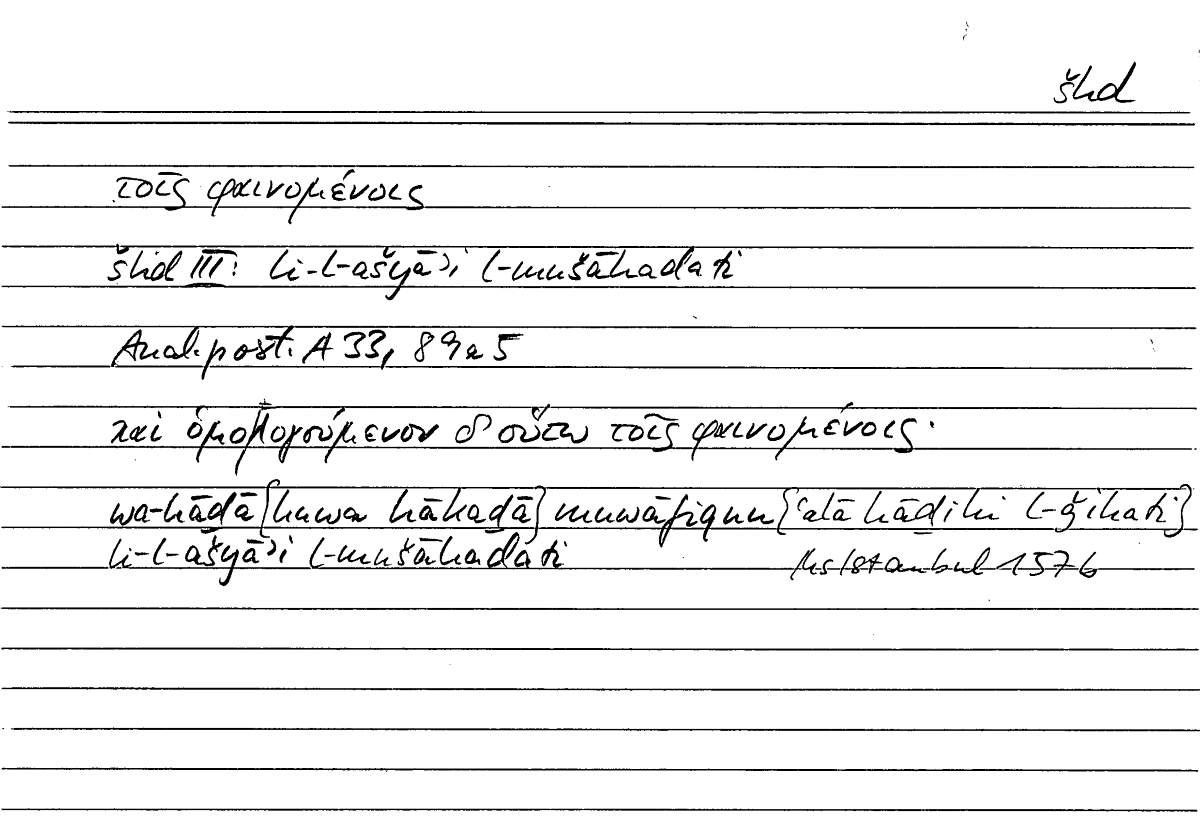 šhd
τοῖς φαινομένοις
šhd III: li-l-ašyāʾi l-mušāhadati
Anal. post. A 33, 89a5
καὶ ὁμολογούμενον δ' οὕτω τοῖς φαινομένοις·
wa-hāḏā {huwa hākaḏā} muwāfiqun {ʿalā hāḏihi l-ǧihati}
li-l-ašyāʾi l-mušāhadati
Ms Istanbul 157b